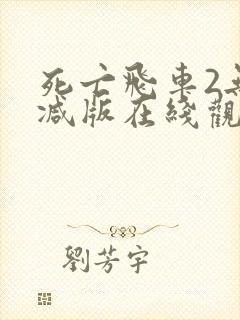 死亡飛車2無
減版在綫觀
劉芳宇